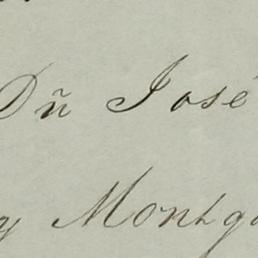 Dñ José
y Montga